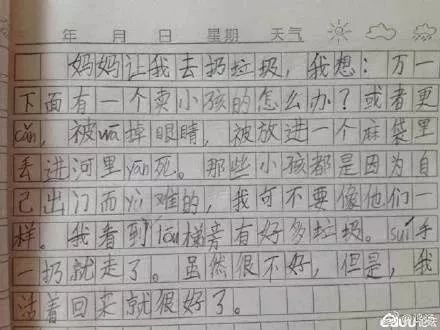 年 月 日 星期 天气
妈妈让我去扔垃圾,我想:万一
下面有一个卖小孩的怎么办?或者更
cǎn,被wā掉眼睛,被放进一个麻袋里
丢进河里yān死。那些小孩都是因为自
己出门而yù难的,我可不要像他们一
样。我看到lóu梯旁有好多垃圾。suí手
一扔就走了。虽然很不好,但是,我
活着回来就很好了。